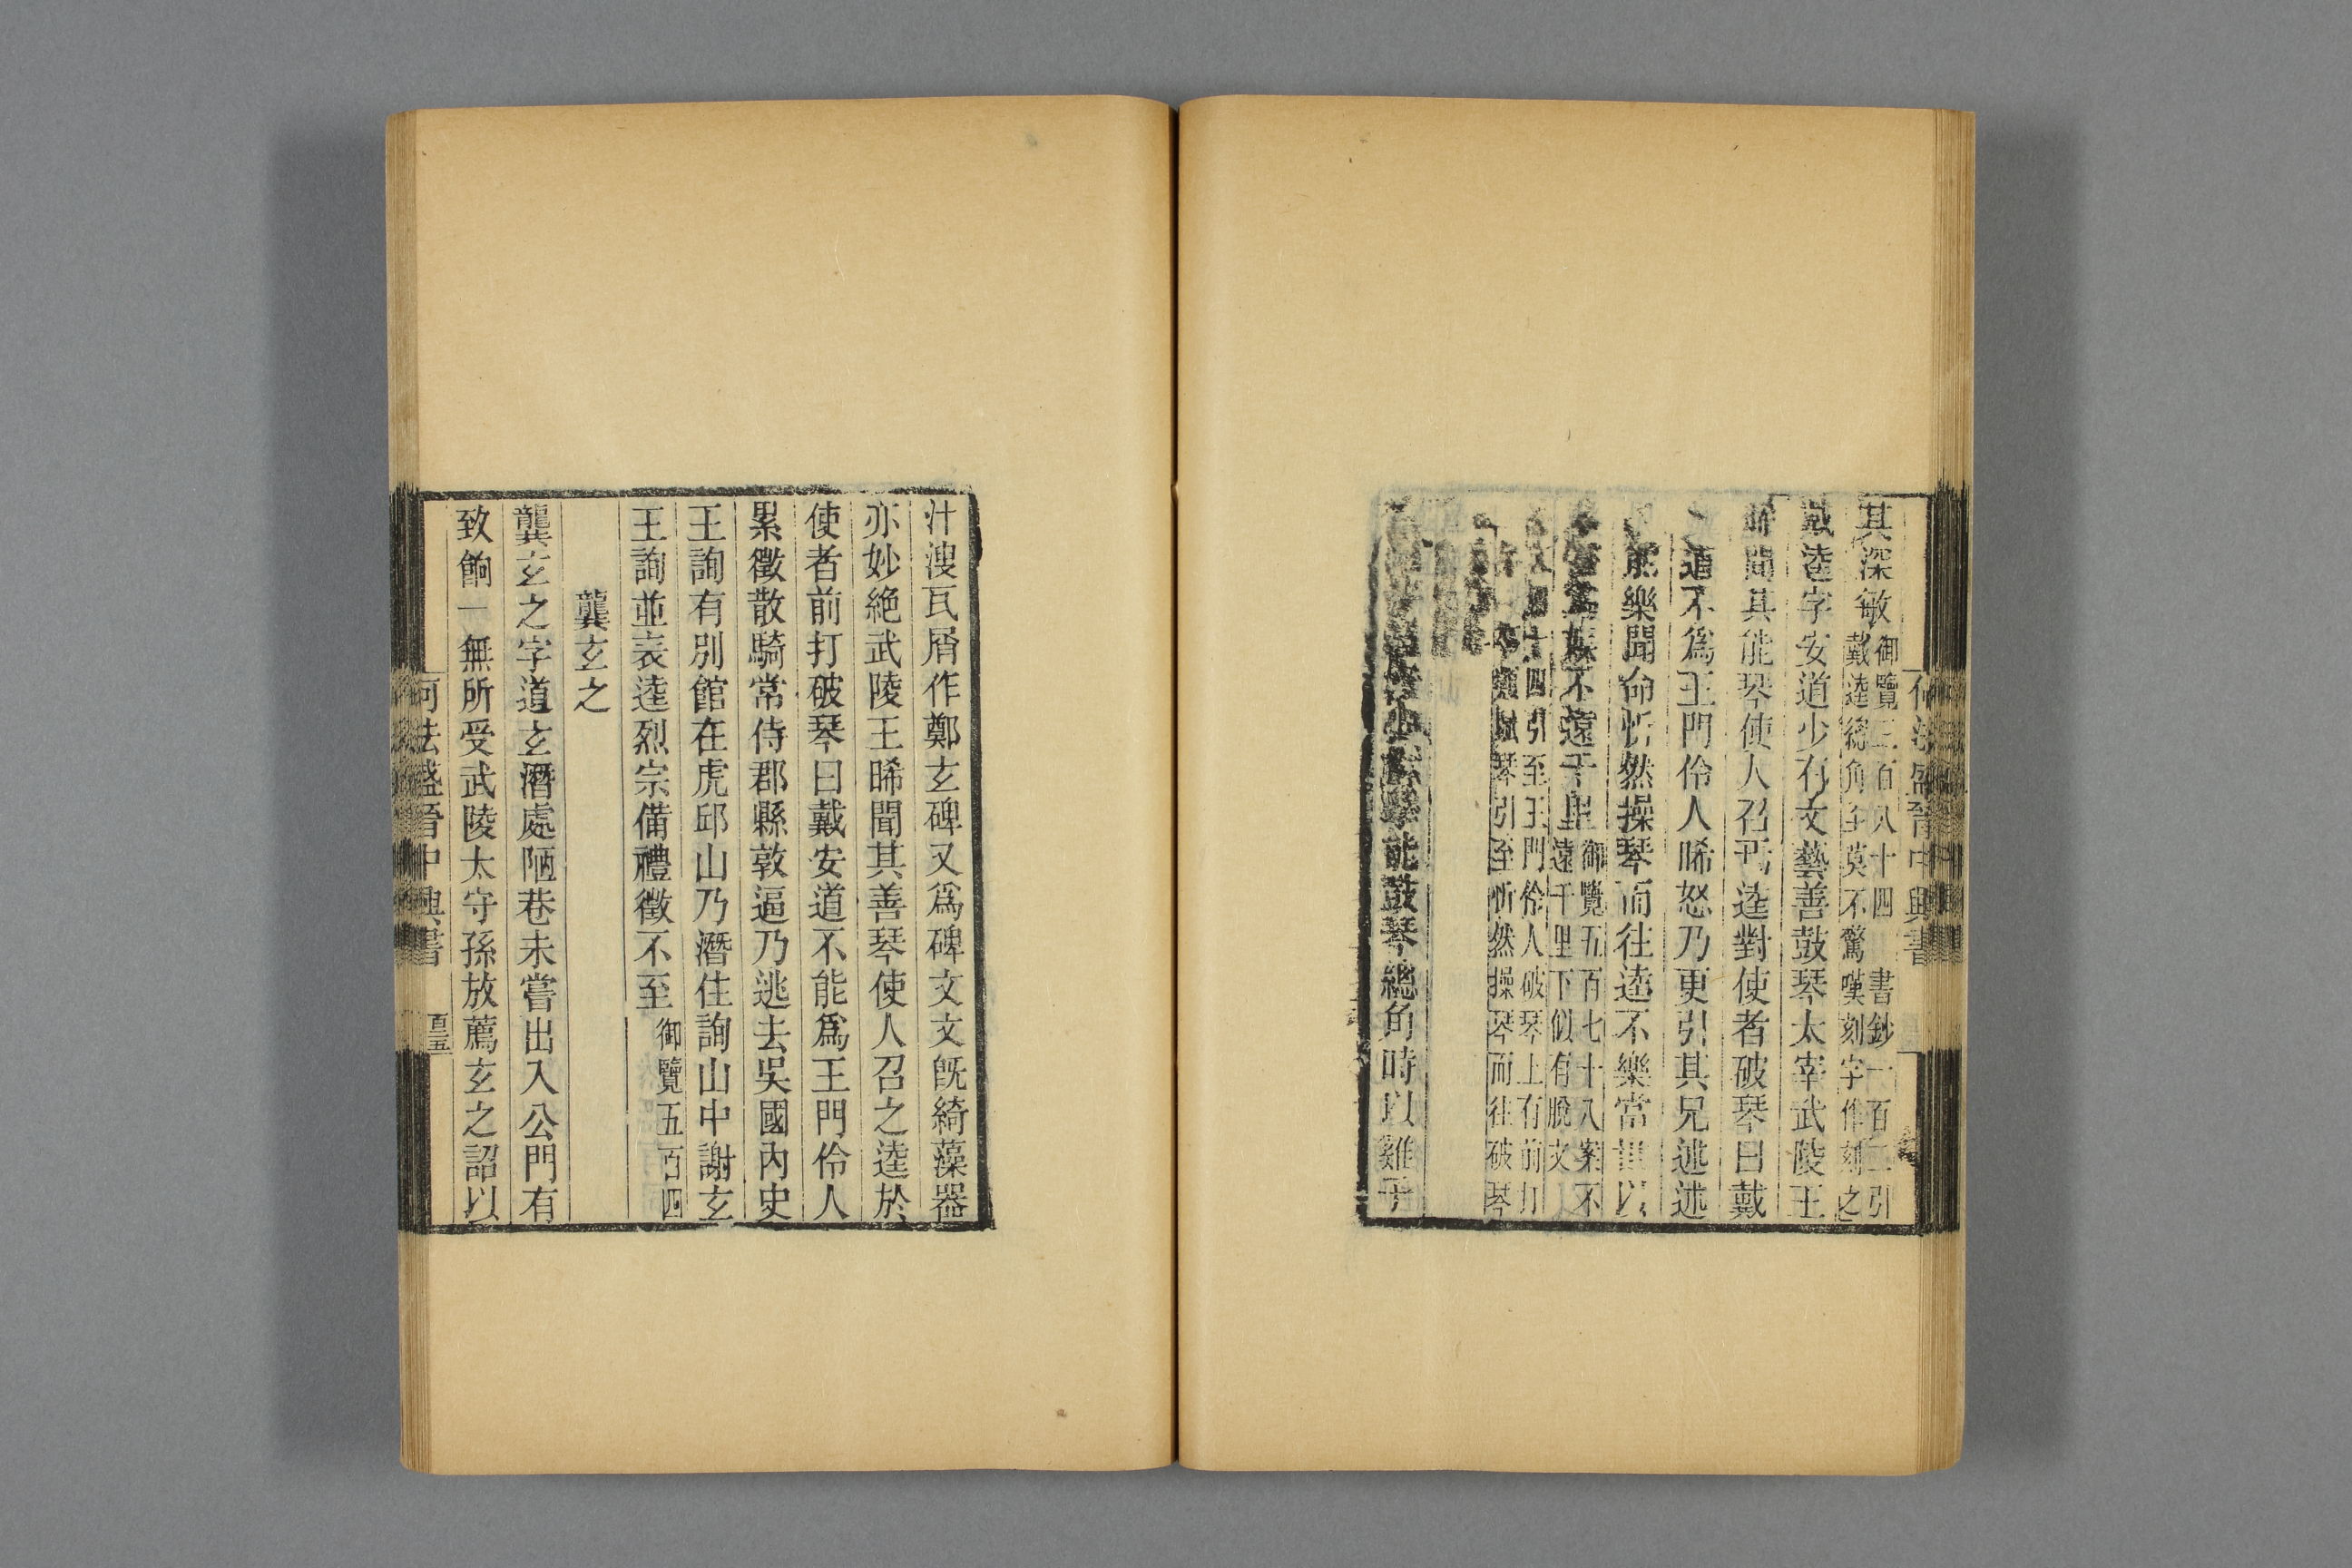 其深敏御覽三百八十四 書鈔一百二引
戴逵總角 莫不驚嘆刻字作刻之
戴逵字安道少有文藝善鼓琴太宰武陵王
聞其能琴使人召焉逵對使者破琴曰戴
道不爲王門伶人晞怒乃更引其兄述述
能樂聞命忻然操琴而往逵不樂當 以
不遠千里御覽五百七十八案不
遠千里下似有脫文
十四引至王門伶人破琴上有前打
琴引至忻然操琴而往破琴
能鼓琴總角時以雞子
汁溲瓦屑作鄭玄碑又爲碑文文既綺藻器
亦妙絶武陵王晞聞其善琴使人召之逵於
使者前打破琴曰戴安道不能爲王門伶人
累徵散騎常侍郡縣敦逼乃逃去吳國內史
王詢有別館在虎邱山乃潛住詢山中謝玄
王詢並表逵烈宗備禮徵不至御覽五百四
龔玄之
龔玄之字道玄潛處陋巷未嘗出入公門有
致餉一無所受武陵太守孫放薦玄之詔以
何法盛晉中興書 百五